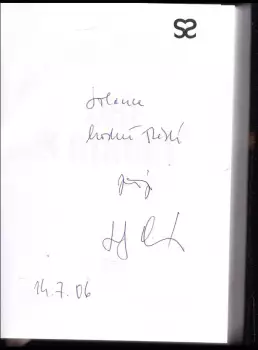 SS
Jolance
hodně štěstí
přeje
14.7.06